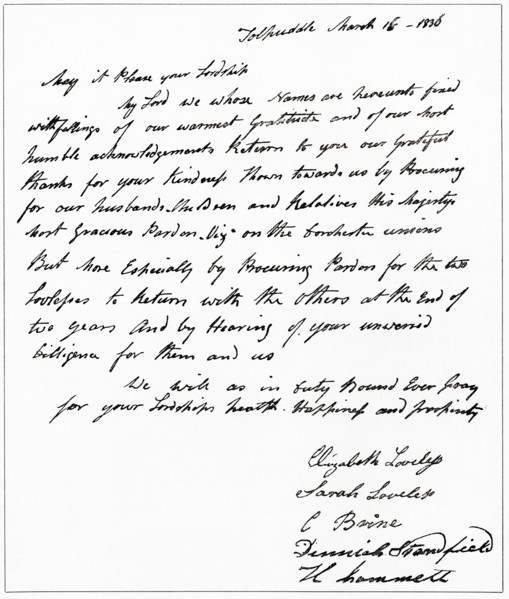 Tolpuddle March 16 - 1836
May it Please your Lordship
My Lord we whose Names are hereunto fixed
with fealings of our warmest Gratitude and of our Most
humble acknowledgements Return to you our Grateful
thanks for your Kindness Shown towards us by Procuring
for our husbands Children and Relatives His Majestys
Most Gracious Pardon on the Dorchester unions
But More Especially by Procuring Pardon for the two
Lovelesses to Return with the others at the End of
two years And by Hearing of your unweried
Dilligence for them and us
We will as in Duty Bound Ever Pray
for your Lordships health. Happiness and prosperity
Elizabeth Loveless
Sarah Loveless
C Brine
Dinniah Standfield
H Hammett